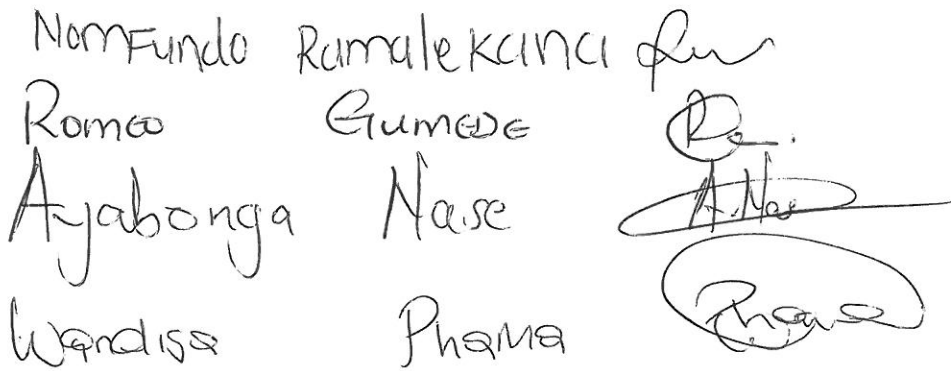 Nomfundo Ramalekana
Romeo Gumede R
Ayabonga Nase A.Nas
Wandisa Phama Phama